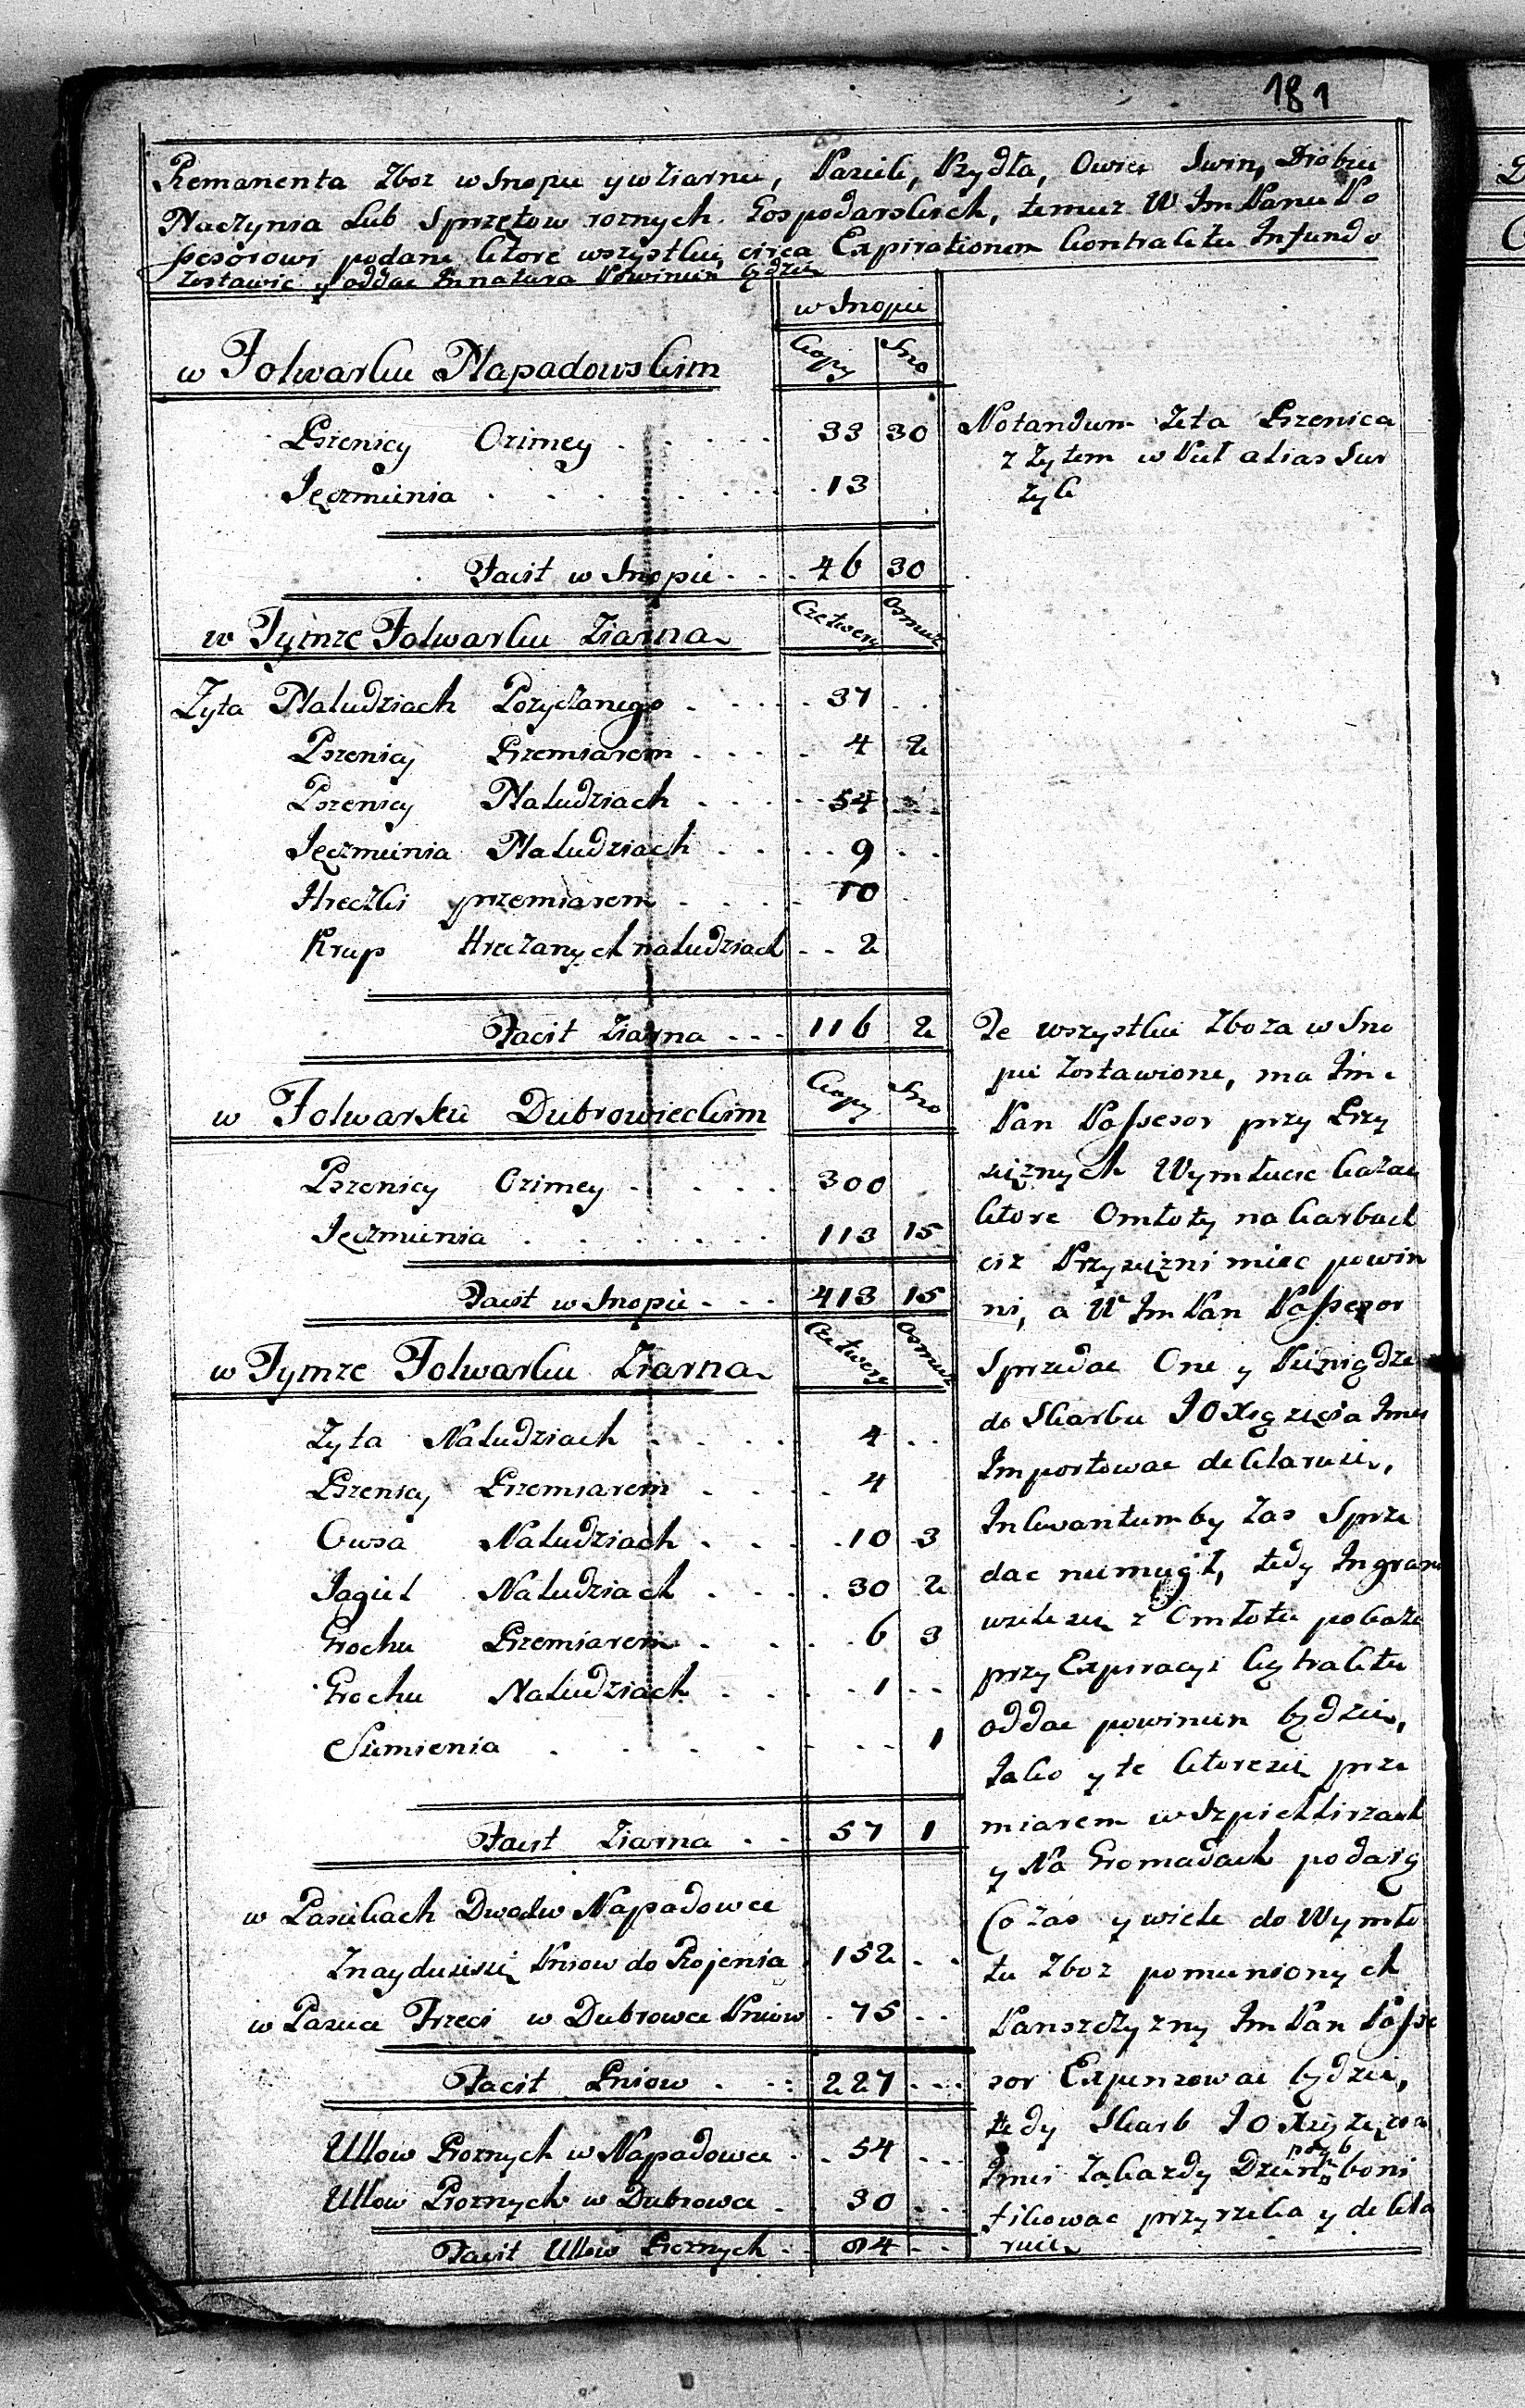 181
Remanenta Zboz w Snopu y w Ziarnie, Pasiek, Bydła, Owiec Swin, Drobiu
Naczynia Lub Sprzętow roznych Gospodarskich, temuz W Im Panu Po
ssesorowi podane ktore wszystkie circa Expirationem Contraktu In fundo
Zostawic y oddac In natura Powinien będzie
w Snopie
w Folwarku Napadowskim Kopy Sno
Pszenicy Ozimey 33 30
Jęczmienia 13
Facit w Snopie 46 30
Notandum Zeta Pszenica
z Zytem w Puł alias Sur
zyk
w Tymze Folwarku Ziarna Czetwery Osmuz
Zyta Naludziach Pozyczanego 37
Pszenicy Przemiarem 4 2
Pszenicy Naludziach 54
Jęczmienia Naludziach 9
Hreczki przemiarem 10
Krup Hreczanych naludziach 2
Facit Ziarna 116 2
w Folwarku Dubrowieckim Kopy Sno
Pszenicy Ozimey 300
Jęczmienia 113 15
Facit w Snopie 413 15
w Tymze Folwarku Ziarna Czetwery Osmuz
Zyta Naludziach 4
Pszenicy Przemiarem 4
Owsa Naludziach 10 3
Jagieł Naludziach 30 2
Grochu Przemiarem 6 3
Grochu Naludziach 1
Siemienia 1
Facit Ziarna 57 1
w Pasiekach Dwoch w Napadowce
Znayduiesię Pniow do Rojenia 152
w Pasiece Trzeci w Dubrowce Pniow 75
Facit Pniow 227
Ullow Proznych w Napadowce 54
Ullow Proznych w Dubrowce 30
Facit Ullow Proznych 84
Te wszystkie Zboza w Sno
pie Zostawione, ma Im
Pan Possesor przy Przy
siężnych Wymłucic kazac
ktore Omłoty na karbach
ciz Przysiężni miec powin
ni, a W Im Pan Possesor
Sprzedac One y Pieniądze
do Skarbu JO Xięzięcia Jmci
Importowac deklaruie,
In kwantum by Zas Sprze
dac niemugł, tedy In grano
wiele się z Omłotu pokaze
przy Expiracyi Contraktu
oddac powinien będzie,
Jako y te ktoresię prze
miarem w Szpichlirzach
y Na Gromadach podaią
Co Zas y wiele do Wymło
tu Zboz pomienionych
Panszczyzny Im Pan Posse
sor Expensowac będzie,
tedy Skarb JO Xięzięcia
Jmci Zakazdy Dzień boni
fikowac przyrzeka y dekla
ruie